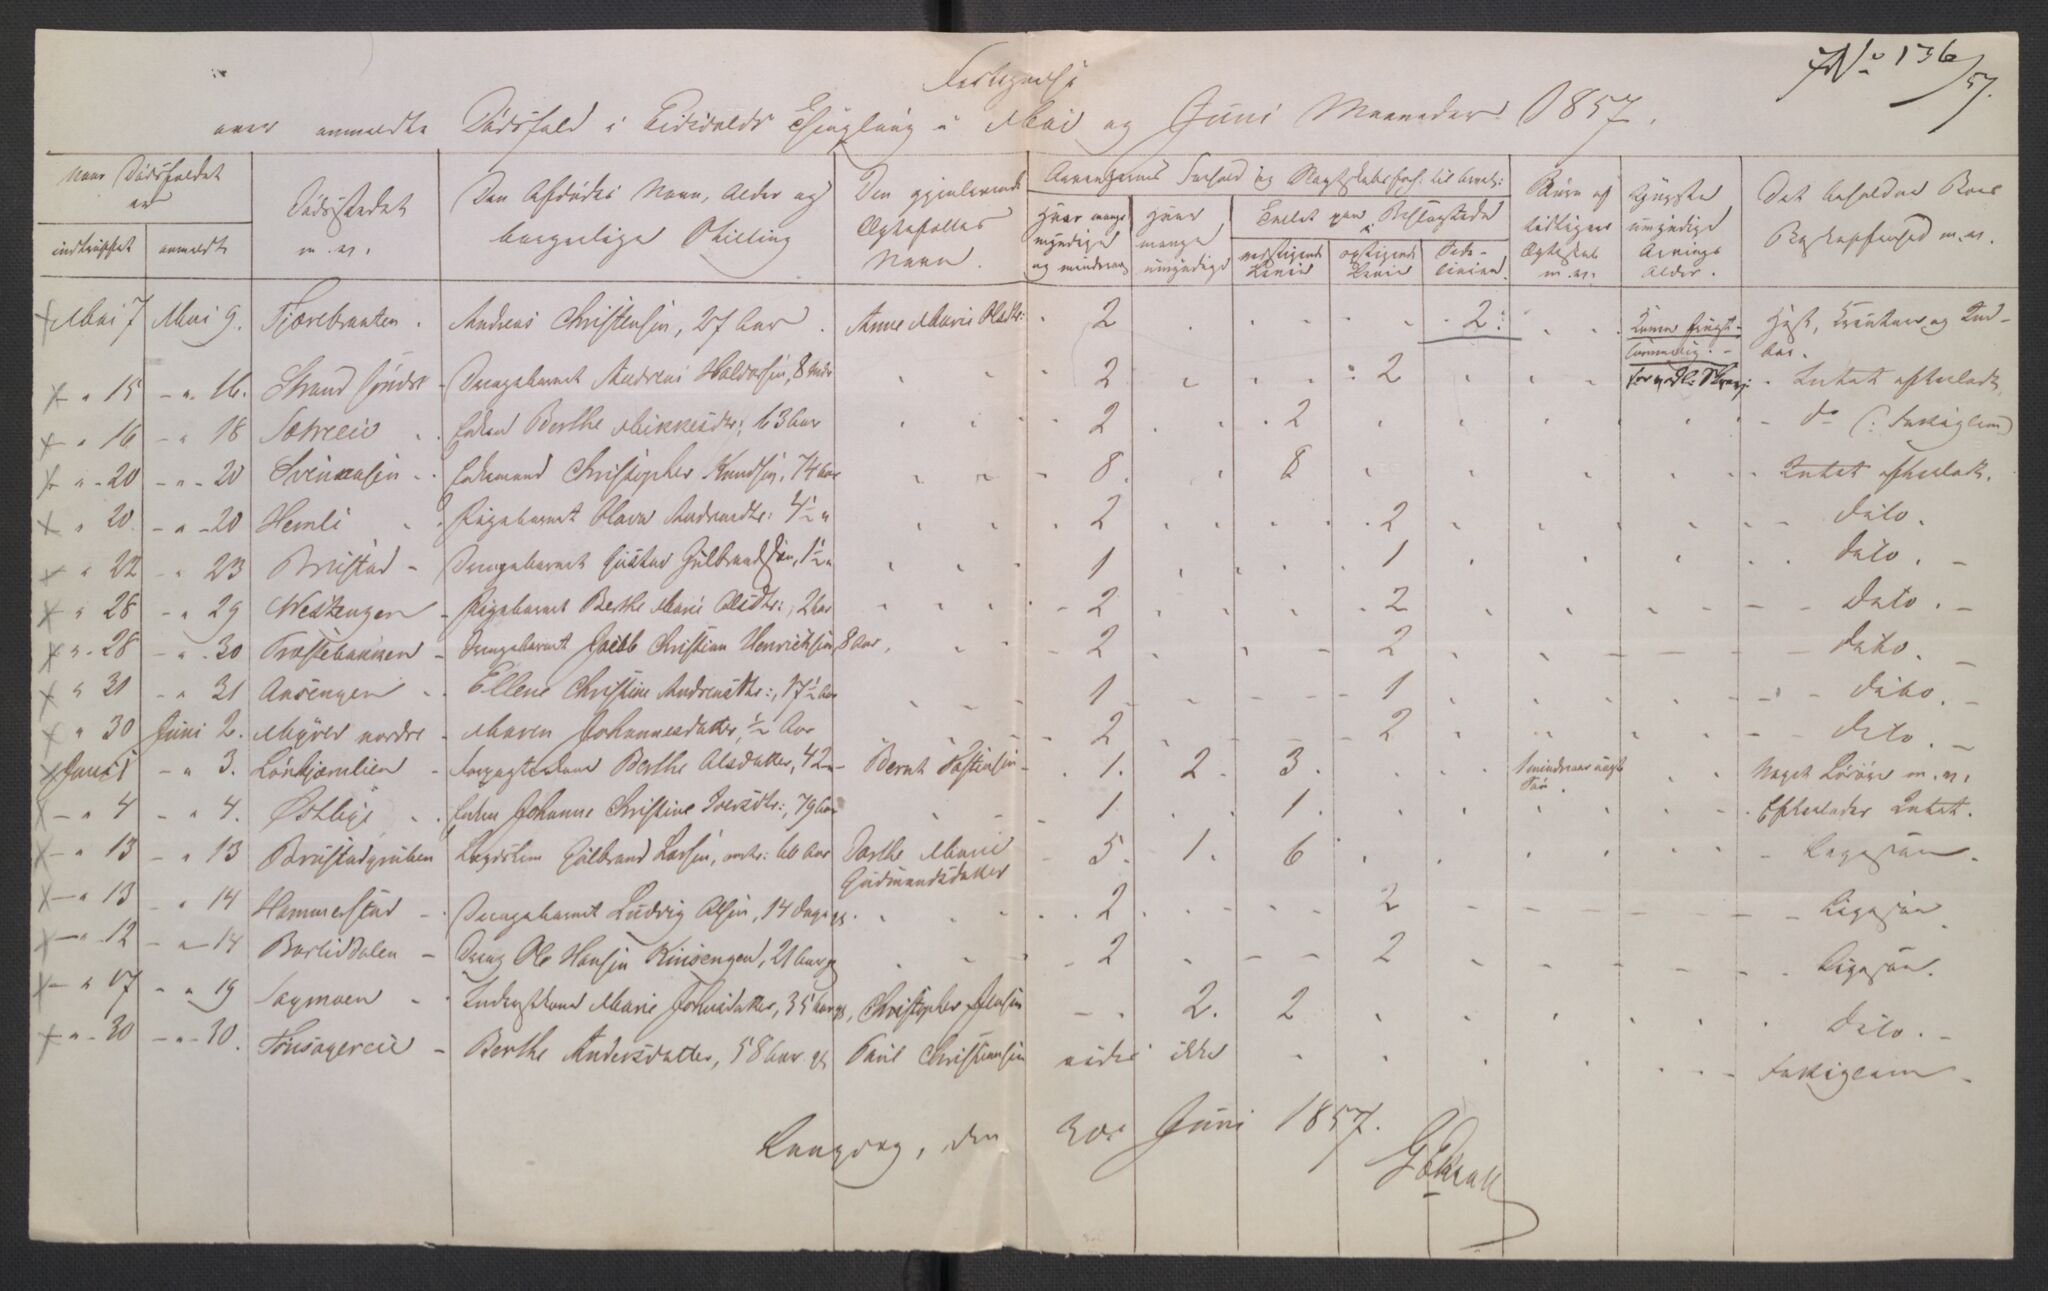 No 136/57.
Fortegnelse
over anmeldte Dødsfald i Eidsvolds Thinglaug i Mai og Juni Maaneder 1857.
Naar Dødsfaldet er
indtruffet
anmeldt
Dødsstedet m. v.
Den Afdødes Navn, Alder og borgerlige Stilling
Den gjenlevende Ægtefælles Navn.
Hvor mange myndige og mindreaar.
Hvor mange umyndige
nedstigende Linie
opstigende Linie
Side-linien.
Børn af tidligere Ægteskab m. v.
Yngste umyndige Arvings Alder.
Det befundne Boes Beskaffenhed m. v.
Mai 7 Mai 9. Fjærebraaten. Andreas Christensen, 27 Aar. Anne Marie Olsdtr: 2 2: Hest, Kreature og Ind-boe.
" 15 " 16. Strand søndre Drengebarnet Andreas Haldorsen, 8 Mdr 2 2 Intet efterladt.
" 16 " 18 Sætreeie Enken Berthe Mikkelsdtr, 63 Aar 2 2 do (: Fattiglem)
" 20 " 20 Svensensen Enkemand Christopher Knudsen, 74 Aar 8. 8 Intet efterladt.
" 20 " 20 Hemli Pigebarnet Olava Andreasdtr: 4½ " 2 2 dito.
" 22 " 23 Brustad Drengebarnet Gustav Gulbrandsen, 1½ " 1 1 dito.
" 28 " 29 Westengen Pigebarnet Berthe Marie Olsdtr:, 2 Aar 2 2 dito.
" 28 " 30 Træstebakken Drengebarnet Jacob Christian Henriksen 8 Aar, 2 2 dito.
" 31 " 31 Aasengen Ellene Christine Andreasdtr:, 17½ Aar 1 1 dito.
" 30 Juni 2. Myrer nordre Maren Johannesdatter, ½ Aar 2 2 dito.
Juni 1 " 3. Lønkjærnlien Berthe Olsdatter, 42 " Bernt 1. 2. 3. Noget Løsøre m. v.
" 4 " 4. Østbye Enken Johanne Christine Iversdtr:, 79 Aar 1. 1. Efterlader Intet.
" 13 " 13 Brustadgruben Lægdslem Gulbrand Larsen, 60 Aar Dorthe Marie Gudmundsdatter 5. 1. 6 Ligesaa.
" 13 " 14 Hammerstad Drengebarnet Ludvig Olsen, 14 Dage gl. 2 2 Ligesaa
" 12 " 14 Borliddalen Dreng Ole Hansen Riisengen, 21 Aar gl 2 2 Ligesaa.
" 17 " 19 Sagmoen Marie Johnsdatter, 35 Aar gl, Christopher Jensen 2. 2 Dito.
" 30 " 30. Berthe Andersdatter, 58 Aar gl Paul Christiansen vides ikke Fattiglem
Langvag, den 30te Juni 1857.